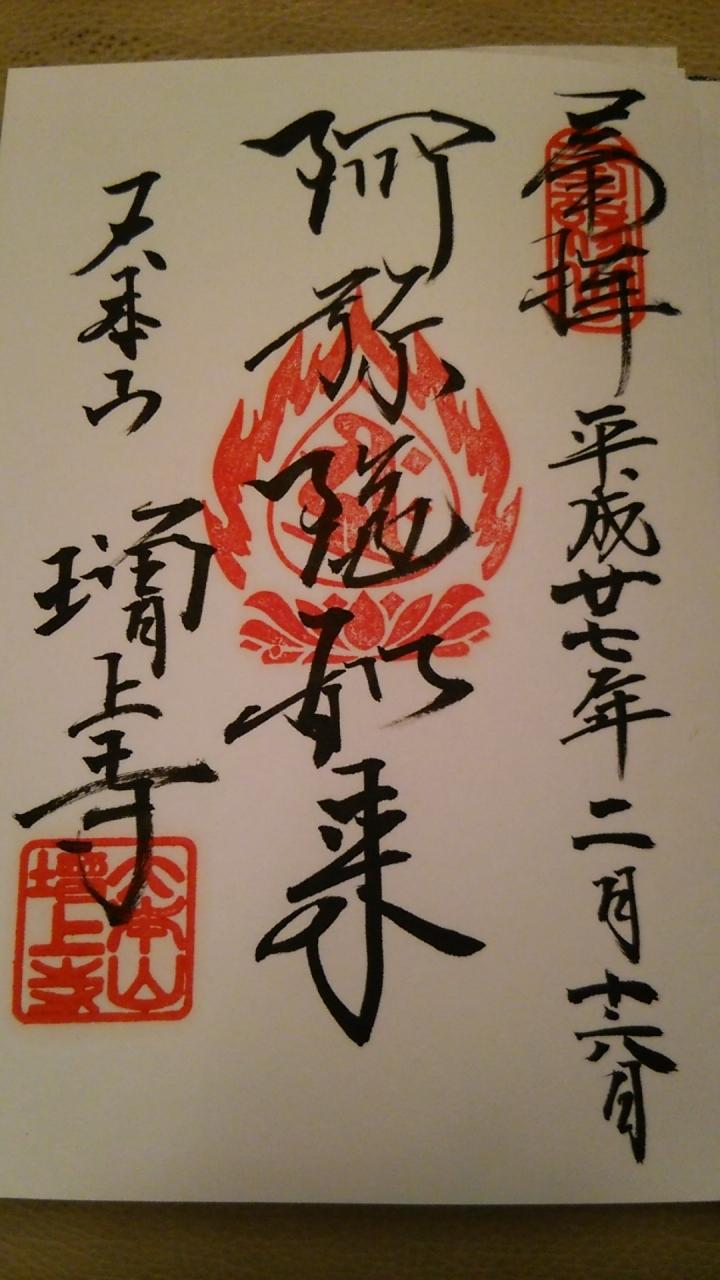 奉拝 平成廿七年二月十六日
阿弥陀如来
大本山
増上寺
大本山
増上寺